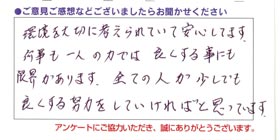 ●ご意見ご感想などございましたらお聞かせください
環境を大切に考えられていて安心してます。
何事も一人の力では良くする事にも
限界があります。全ての人が少しでも
良くする努力をしていければと思っています。
アンケートにご協力いただき、誠にありがとうございます。